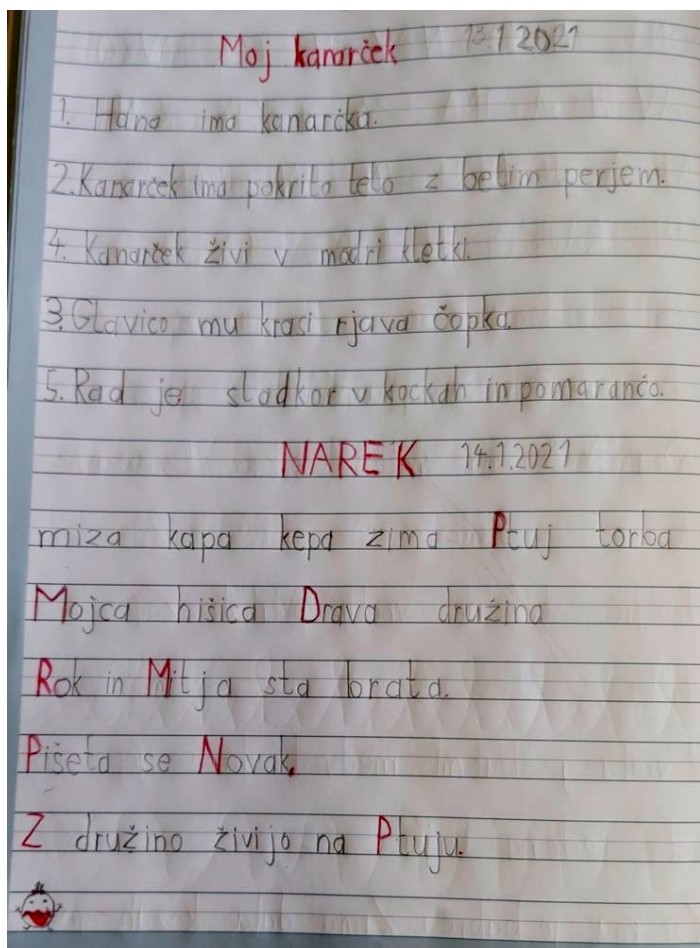 Moj kanarček 13.1.2021
1. Hana ima kanarčka.
2. Kanarček ima pokrito telo z belim perjem.
4. Kanarček živi v modri kletki.
3. Glavico mu krasi rjava čopka.
5. Rad je sladkor v kockah in pomarančo.
NAREK 14.1.2021
miza kapa kepa zima Ptuj torba
Mojca hišica Drava družina
Rok in Mitja sta brata.
Pišeta se Novak.
Z družino živijo na Ptuju.